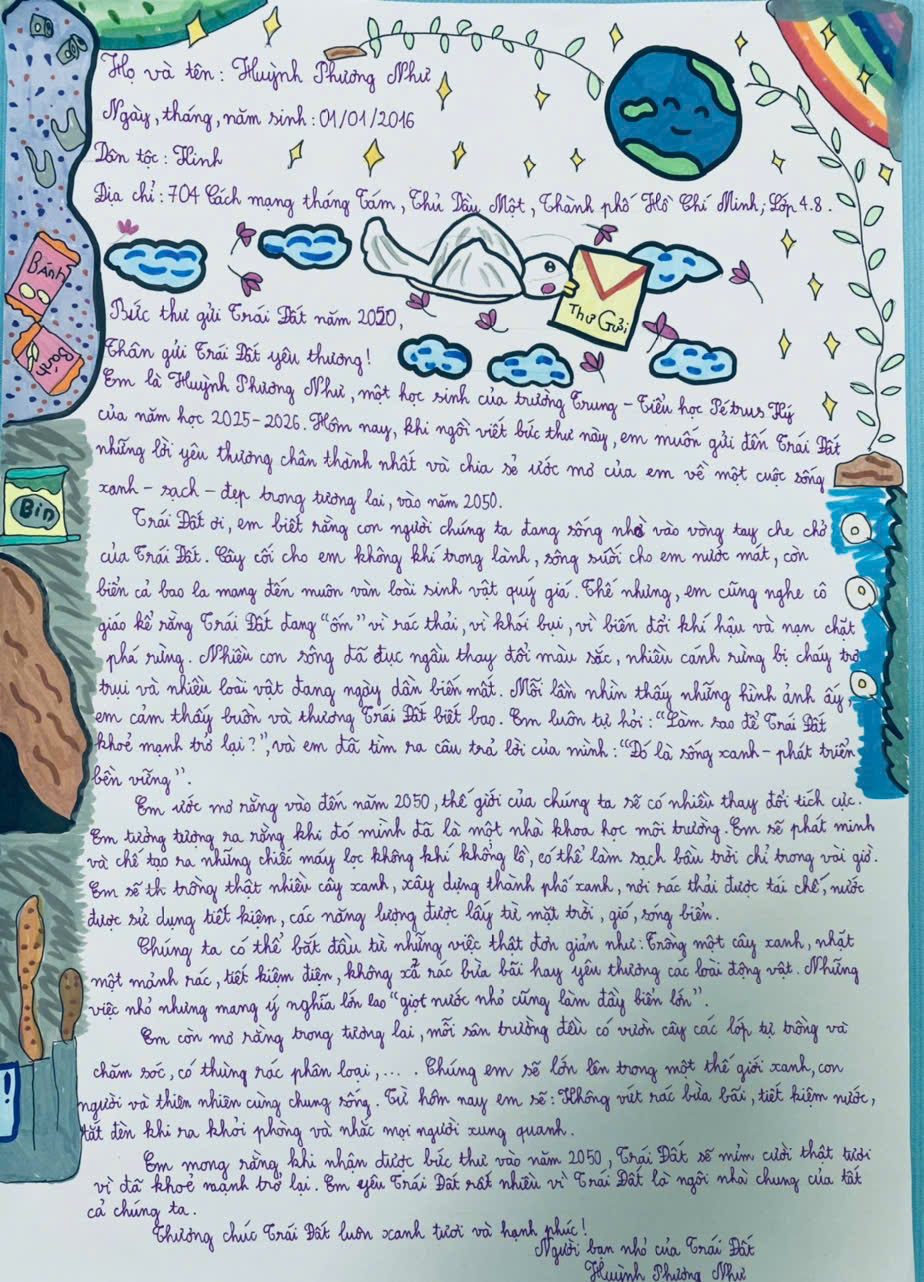 Họ và tên : Huỳnh Phương Như
Ngày, tháng, năm sinh : 01/01/2016
Dân tộc : Kinh
Địa chỉ : 704 Cách mạng tháng Tám, Thủ Dầu Một, Thành phố Hồ Chí Minh; Lớp 4.8.
BÁNH
Bánh
Thư Gửi
Bức thư gửi Trái Đất năm 2050,
Thân gửi Trái Đất yêu thương!
Em là Huỳnh Phương Như, một học sinh của trường Trung - Tiểu học Pétrus Ký
của năm học 2025-2026. Hôm nay, khi ngồi viết bức thư này, em muốn gửi đến Trái Đất
những lời yêu thương chân thành nhất và chia sẻ ước mơ của em về một cuộc sống
xanh - sạch - đẹp trong tương lai, vào năm 2050.
Bin
Trái Đất ơi, em biết rằng con người chúng ta đang sống nhờ vào vòng tay che chở
của Trái Đất. Cây cối cho em không khí trong lành, sông suối cho em nước mát, còn
biển cả bao la mang đến muôn vàn loài sinh vật quý giá. Thế nhưng, em cũng nghe cô
giáo kể rằng Trái Đất đang "ốm" vì rác thải, vì khói bụi, vì biến đổi khí hậu và nạn chặt
phá rừng. Nhiều con sông đã đục ngầu thay đổi màu sắc, nhiều cánh rừng bị cháy trơ
trụi và nhiều loài vật đang ngày dần biến mất. Mỗi lần nhìn thấy những hình ảnh ấy,
em cảm thấy buồn và thương Trái Đất biết bao. Em luôn tự hỏi : "Làm sao để Trái Đất
khoẻ mạnh trở lại?", và em đã tìm ra câu trả lời của mình : "Đó là sống xanh - phát triển
bền vững".
Em ước mơ rằng vào đến năm 2050, thế giới của chúng ta sẽ có nhiều thay đổi tích cực.
Em tưởng tượng ra rằng khi đó mình đã là một nhà khoa học môi trường. Em sẽ phát minh
và chế tạo ra những chiếc máy lọc không khí khổng lồ, có thể làm sạch bầu trời chỉ trong vài giờ.
Em sẽ th trồng thật nhiều cây xanh, xây dựng thành phố xanh, nơi rác thải được tái chế, nước
được sử dụng tiết kiệm, các năng lượng được lấy từ mặt trời, gió, sóng biển.
Chúng ta có thể bắt đầu từ những việc thật đơn giản như : Trồng một cây xanh, nhặt
một mảnh rác, tiết kiệm điện, không xả rác bừa bãi hay yêu thương các loài động vật. Những
việc nhỏ nhưng mang ý nghĩa lớn lao "giọt nước nhỏ cũng làm đầy biển lớn".
Em còn mơ rằng trong tương lai, mỗi sân trường đều có vườn cây các lớp tự trồng và
chăm sóc, có thùng rác phân loại,... . Chúng em sẽ lớn lên trong một thế giới xanh, con
người và thiên nhiên cùng chung sống. Từ hôm nay em sẽ : Không vứt rác bừa bãi, tiết kiệm nước,
tắt đèn khi ra khỏi phòng và nhắc mọi người xung quanh.
!
Em mong rằng khi nhận được bức thư vào năm 2050, Trái Đất sẽ mỉm cười thật tươi
vì đã khoẻ mạnh trở lại. Em yêu Trái Đất rất nhiều vì Trái Đất là ngôi nhà chung của tất
cả chúng ta.
Thương chúc Trái Đất luôn xanh tươi và hạnh phúc!
Người bạn nhỏ của Trái Đất
Huỳnh Phương Như